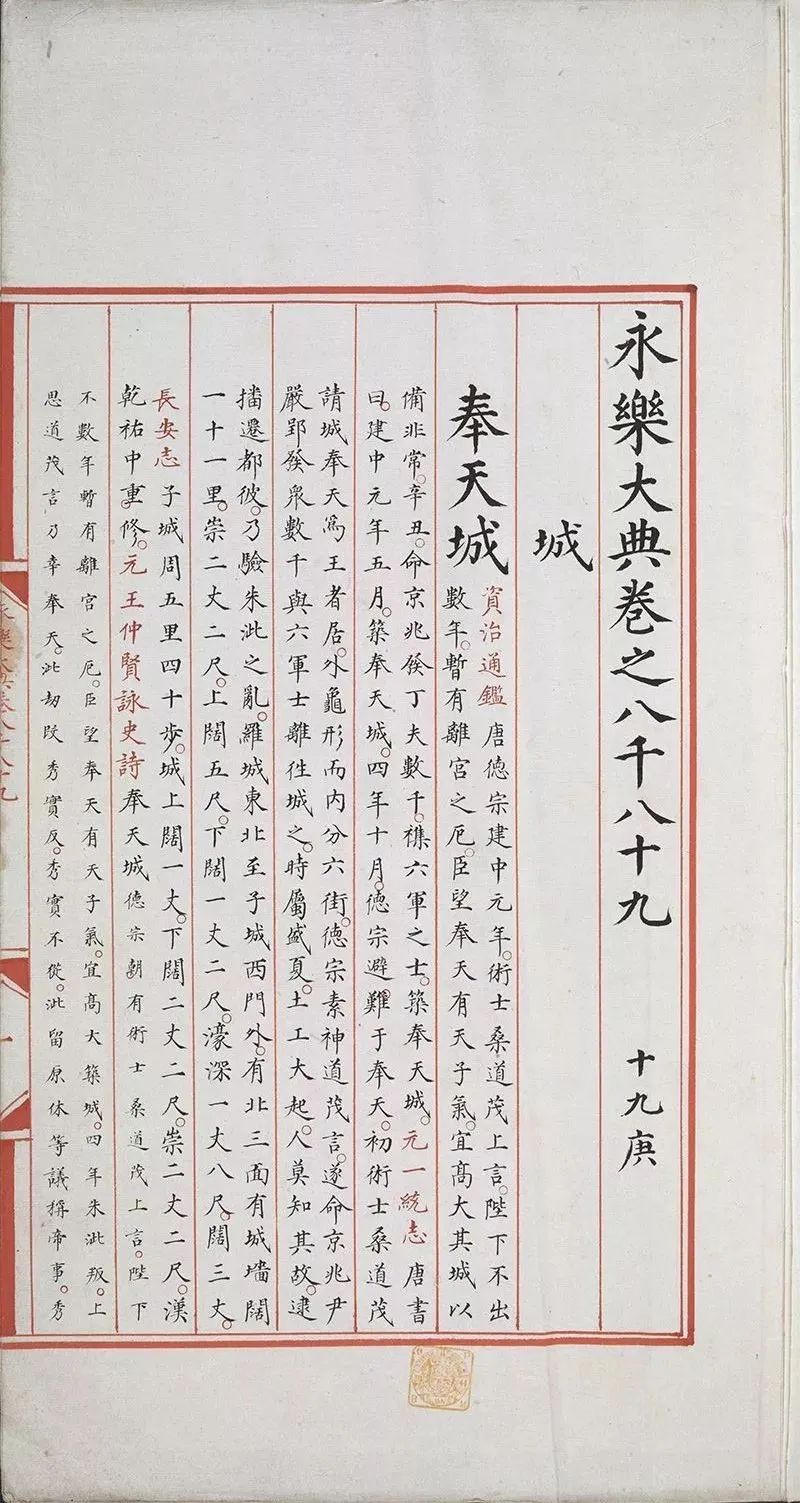 永樂大典卷之八千八十九　十九庚
城
奉天城
資治通鑑唐德宗建中元年。術士桑道茂上言。陛下不出
數年。暫有離宮之厄。臣望奉天有天子氣。宜髙大其城以
備非常。辛丑。命京兆發丁夫數千。襍六軍之士。築奉天城。元一統志唐書
曰。建中元年五月。築奉天城。四年十月。德宗避難于奉天。初術士桑道茂
請城奉天爲王者居。外龜形而內分六街。德宗素神道茂言。遂命京兆尹
嚴郢發衆數千與六軍士離徃城之。時屬盛夏。土工大起。人莫知其故。逮
播遷都彼。乃驗朱泚之亂。羅城東北至子城西門外。有北三面有城墻闊
一十一里。崇二丈二尺。上闊五尺。下闊一丈二尺。濠深一丈八尺。闊三丈。
長安志子城周五里四十步。城上闊一丈。下闊二丈二尺。崇二丈二尺。漢
乾祐中重修。元王仲賢詠史詩奉天城德宗朝有術士桑道茂上言。陛下
不數年暫有離宮之厄。臣望奉天有天子氣。宜髙大築城。四年朱泚叛。上
思道茂言乃幸奉天。泚刼段秀實反。秀實不從。泚留原休等議稱帝事。秀
永樂大典卷八千八十九
一